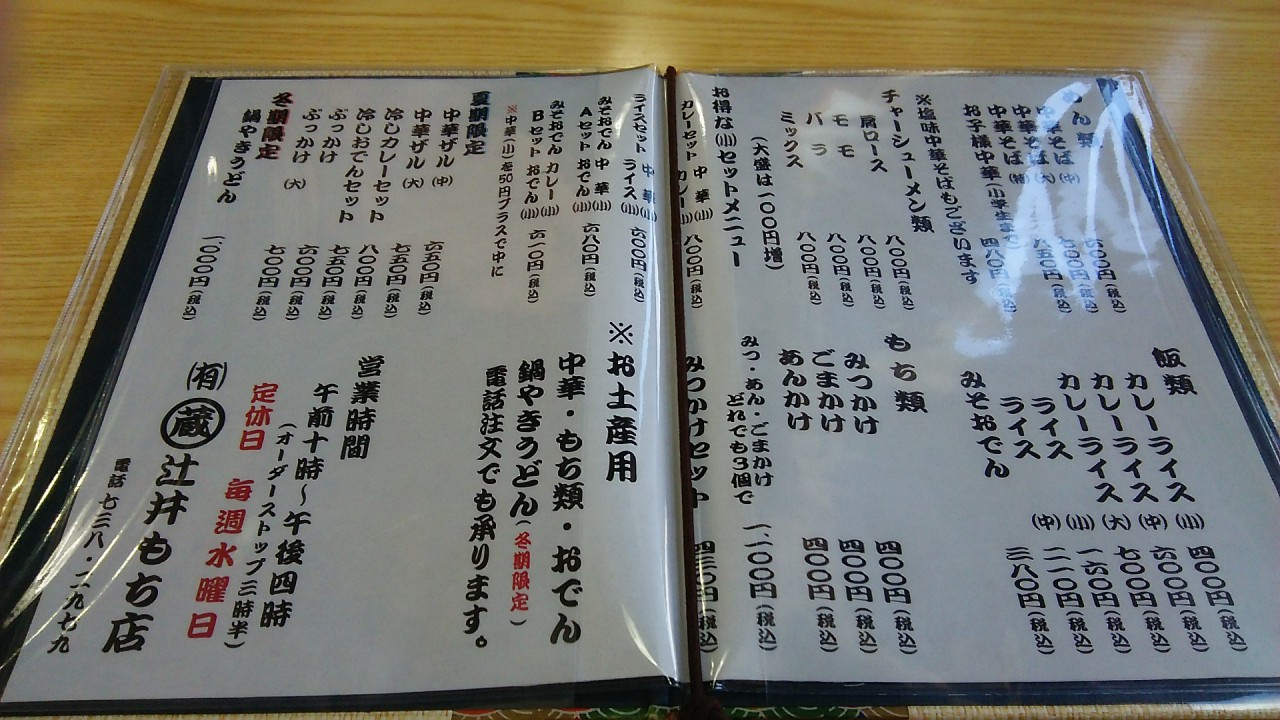 めん類
中華そば(中) 六〇〇円(税込)
中華そば(大) 七〇〇円(税込)
中華そば(特) 八五〇円(税込)
お子様中華(小学生まで) 四八〇円(税込)
※塩味中華そばもございます
チャーシューメン類
肩ロース 八〇〇円(税込)
モモ 八〇〇円(税込)
バラ 八〇〇円(税込)
ミックス 八〇〇円(税込)
(大盛は一〇〇円増)
お得な(小)セットメニュー
カレーセット 中華(小) カレー(小) 八〇〇円(税込)
飯類
カレーライス(小) 四〇〇円(税込)
カレーライス(中) 六〇〇円(税込)
カレーライス(大) 七〇〇円(税込)
ライス(小) 一六〇円(税込)
ライス(中) 二一〇円(税込)
みそおでん 三八〇円(税込)
もち類
みつかけ 四〇〇円(税込)
ごまかけ 四〇〇円(税込)
あんかけ 四〇〇円(税込)
みつ・あん・ごまかけ
どれでも3個で 一、一〇〇円(税込)
みつかけセット 四三〇円(税込)
ライスセット 中華(小) ライス(小) 六〇〇円(税込)
みそおでん 中華(小)
Aセット おでん(小) 六八〇円(税込)
みそおでん カレー(小)
Bセット おでん(小) 六一〇円(税込)
※中華(小)を50円プラスで中に
夏期限定
中華ザル(中) 六五〇円(税込)
中華ザル(大) 七五〇円(税込)
冷しカレーセット 八〇〇円(税込)
冷しおでんセット 七五〇円(税込)
ぶっかけ 六〇〇円(税込)
ぶっかけ(大) 七〇〇円(税込)
冬期限定
鍋やきうどん 一、〇〇〇円(税込)
※お土産用
中華・もち類・おでん
鍋やきうどん(冬期限定)
電話注文でも承ります。
営業時間
午前十時～午後四時
(オーダーストップ三時半)
定休日 毎週水曜日
(有)蔵辻井もち店
電話 七三八・二九七九